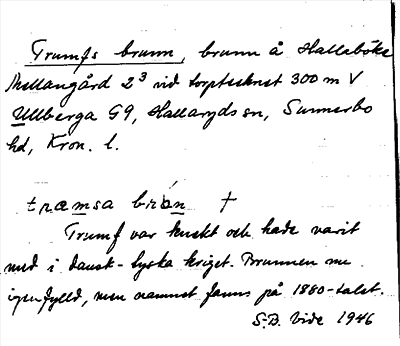 Trumfs brunn, brunn å Hallaböke
Mellangård 2³ vid torptecknet 300 m V
Ullberga G9, Hallaryds sn, Sunnerbo
hd, Kron. l.
træmsa brön †
Trumf var kuskt och hade varit
med i dansk-tyska kriget. Brunnen nu
igenfylld, men namnet fanns på 1880-talet.
S.B. Vide 1946